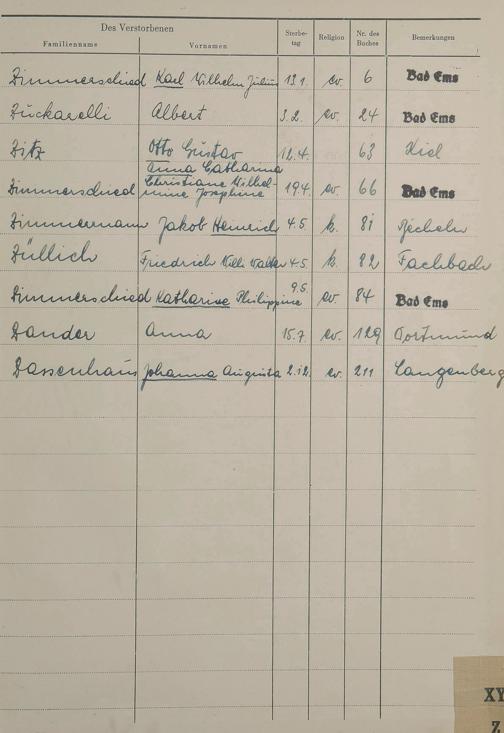 Des Verstorbenen
Familienname Vornamen Sterbe-tag Religion Nr. des Buches Bemerkungen
Zimmerschied Karl Wilhelm Julius 13.1. ev. 6 Bad Ems
Zuckarelli Albert 3.2. ev. 24 Bad Ems
Zitz Otto Gustav 12.4. 63 Kiel
Anna Catharina
Zimmerschied Christiane Wilhel- 19.4. ev. 66 Bad Ems
mine Josephine
Zimmermann Jakob Heinrich 4.5. k. 81
Züllich Friedrich Willi Walter 4.5. k. 82 Fachbach
Zimmerschied Katharine Philippine 9.5. ev. 84 Bad Ems
Zander Anna 15.7. ev. 129 Dortmund
Zassenhaus Johanna Augusta 2.12. ev. 211 Langenberg
XY
Z